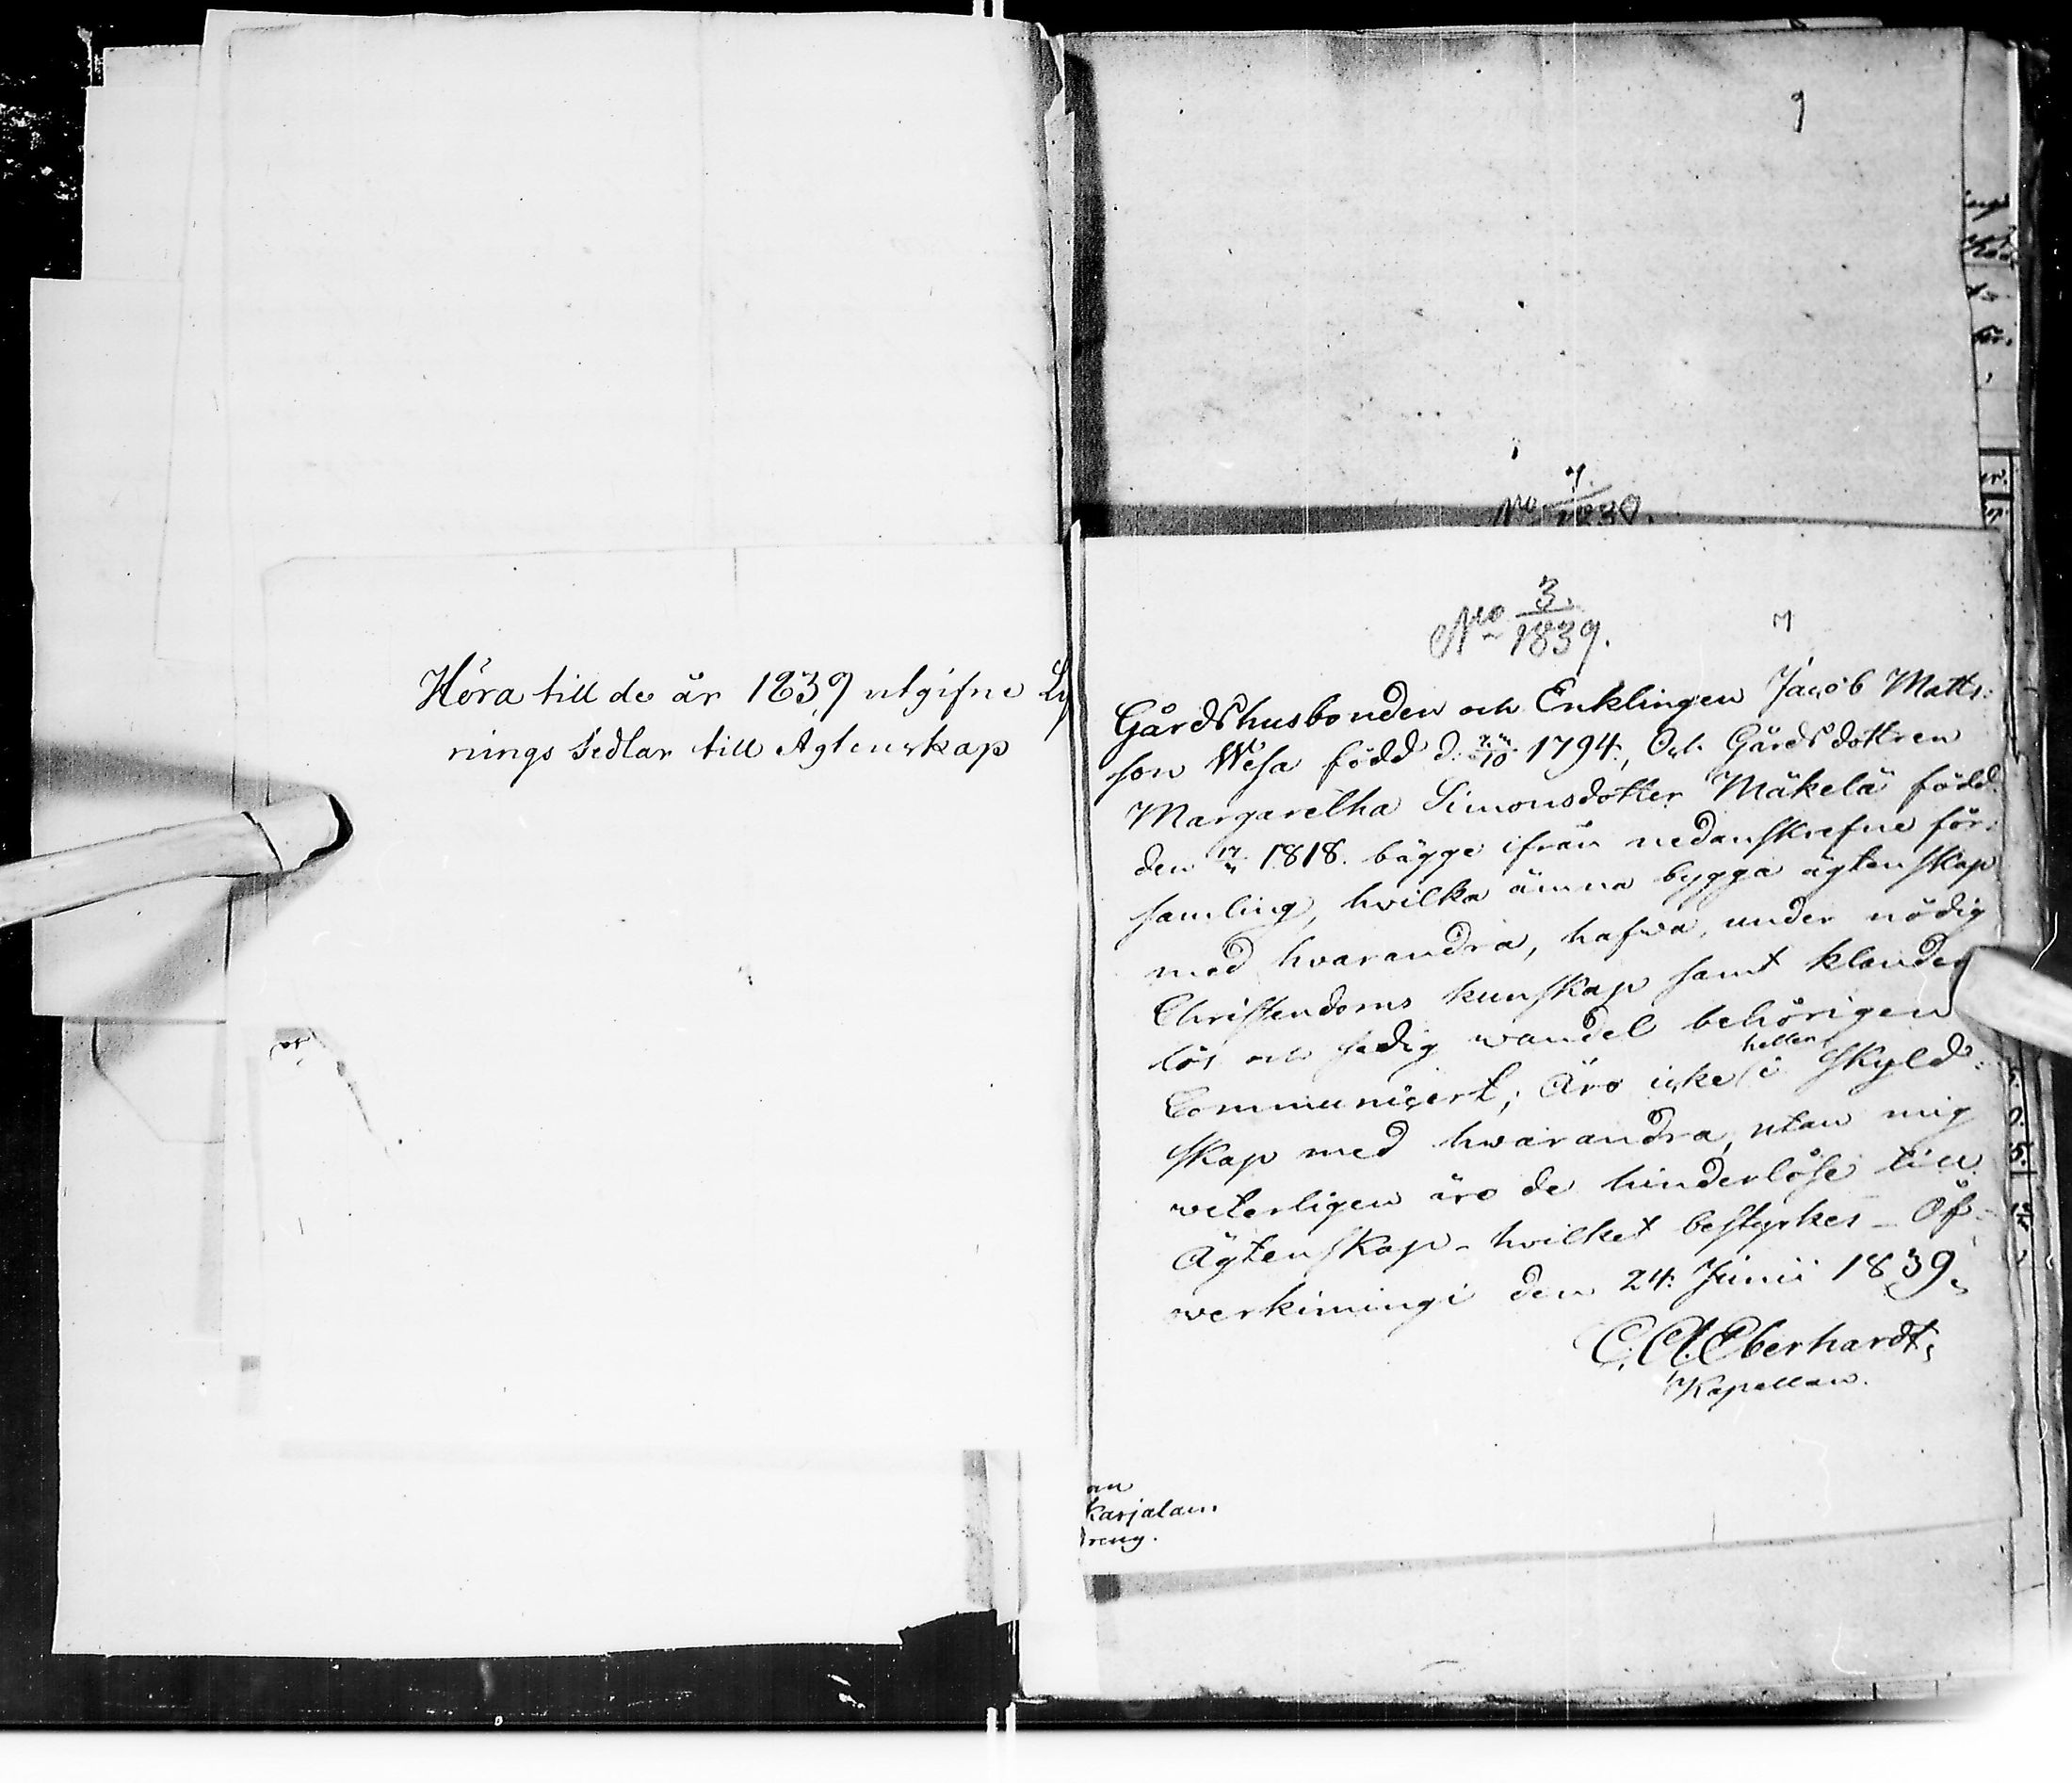 Höra till de år 1839 utgifne Ly
nings Sedlar till Agtenskap
9
No 3./1839.
Gårdshusbonden och Enklingen Jacob Matts:
son Wesa född d. 1794., Och Gårdsdottren
Margaretha Simonsdotter Mäkelä född
den 1818. bägge ifrån nedanskrefne för:
samling, hvilka ämna bygga ägtenskap
med hvarandra, hafwa, under nödig
Christendoms kunskap samt klander
lös och sedig wandel behörigen
Communicert; Äro icke heller i Skyld:
skap med hwarandra, utan mig
veterligen äro de hinderlöse till
Ägtenskap - hvilket bestyrkes - Öf-
werkimingi den 24: Junii 1839.
C. A. Eberhardt,
Kapellan.
an
Karjalan
dreng.